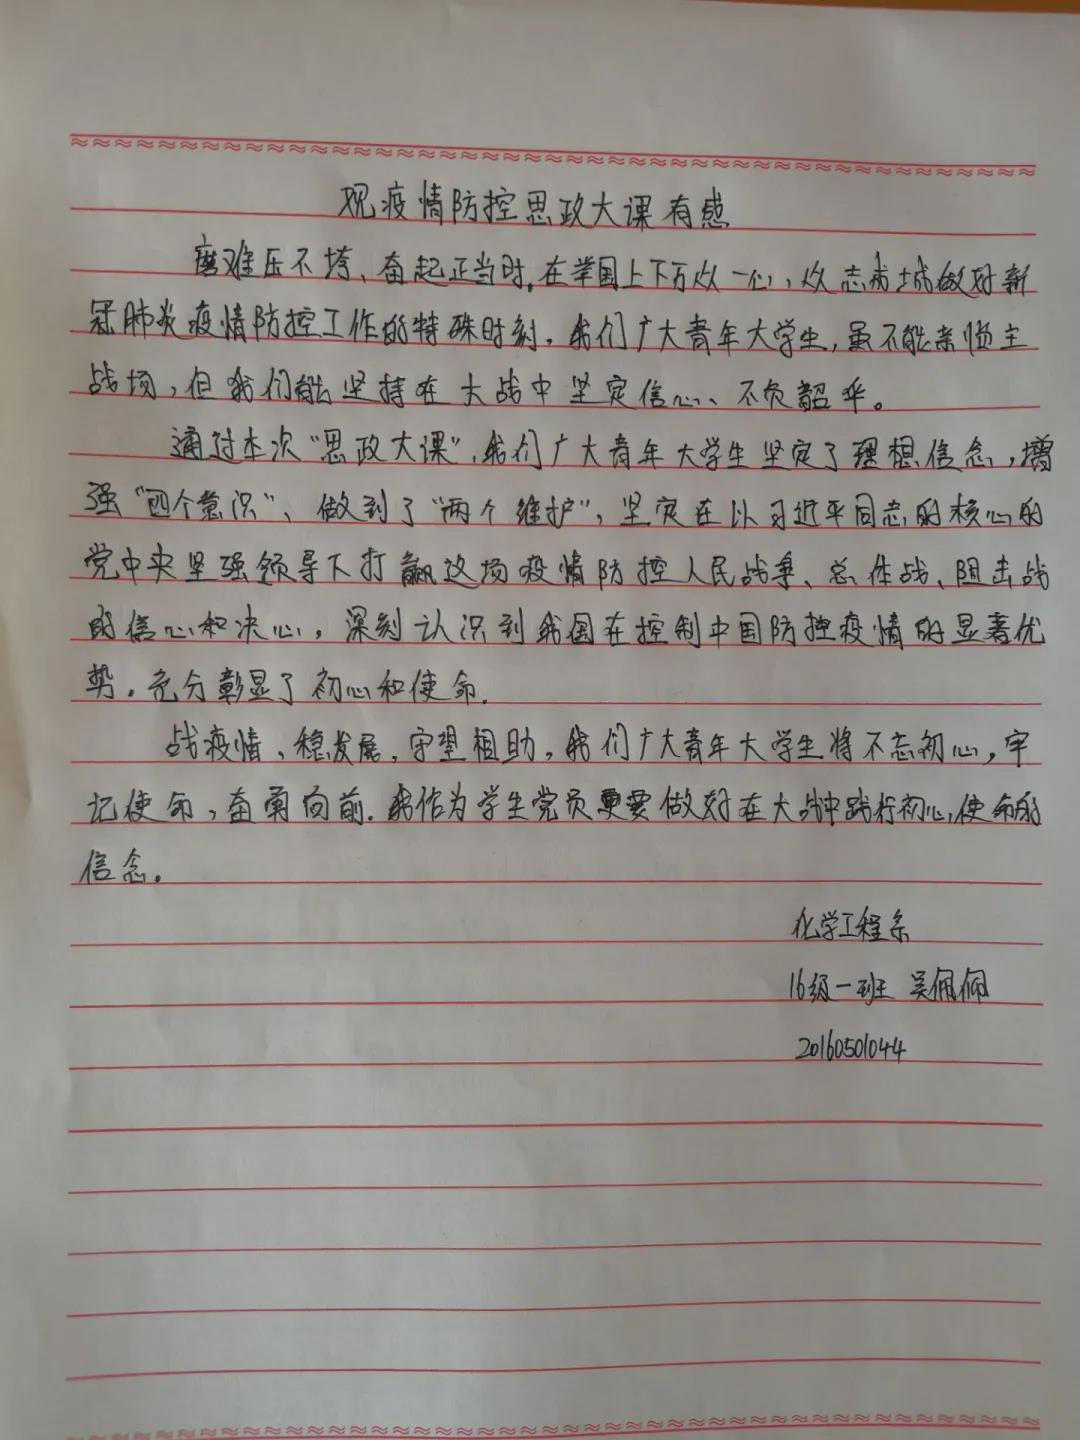 观疫情防控思政大课有感
磨难压不垮、奋起正当时，在举国上下万众一心，众志成城做好新
冠肺炎疫情防控工作的特殊时刻。我们广大青年大学生，虽不能亲临主
战场，但我们能坚持在大战中坚定信心、不负韶华。
通过本次“思政大课”，我们广大青年大学生坚定了理想信念，增
强“四个意识”、做到了“两个维护”，坚定在以习近平同志的核心的
党中央坚强领导下打赢这场疫情防控人民战争、总体战、阻击战
的信心和决心，深刻认识到我国在控制中国防控疫情的显著优
势。充分彰显了初心和使命.
战疫情、稳发展，守望相助，我们广大青年大学生将不忘初心，牢
记使命，奋勇向前.我作为学生党员更要做好在大战中践行初心,使命的
信念。
化学工程系
16级一班 吴佩佩
20160501044